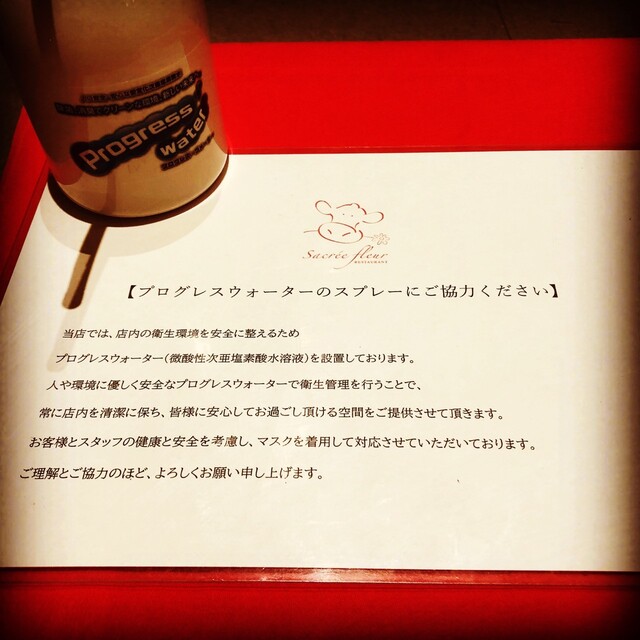 Progress
water
Sacrée fleur
RESTAURANT
【プログレスウォーターのスプレーにご協力ください】
当店では、店内の衛生環境を安全に整えるため
プログレスウォーター(微酸性次亜塩素酸水溶液)を設置しております。
人や環境に優しく安全なプログレスウォーターで衛生管理を行うことで、
常に店内を清潔に保ち、皆様に安心してお過ごし頂ける空間をご提供させて頂きます。
お客様とスタッフの健康と安全を考慮し、マスクを着用して対応させていただいております。
ご理解とご協力のほど、よろしくお願い申し上げます。